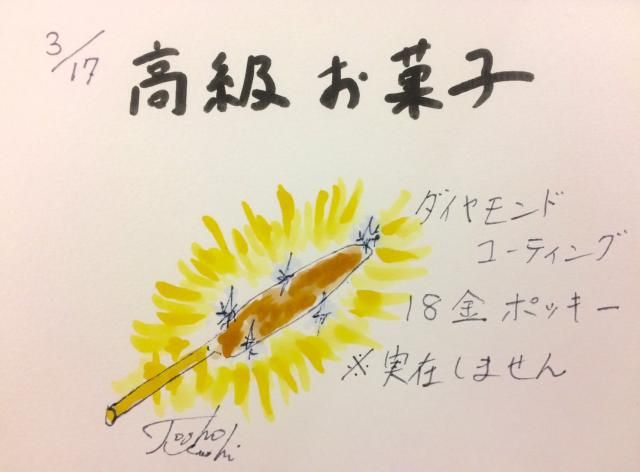 3/17
高級お菓子
ダイヤモンド
コーティング
18金ポッキー
※実在しません